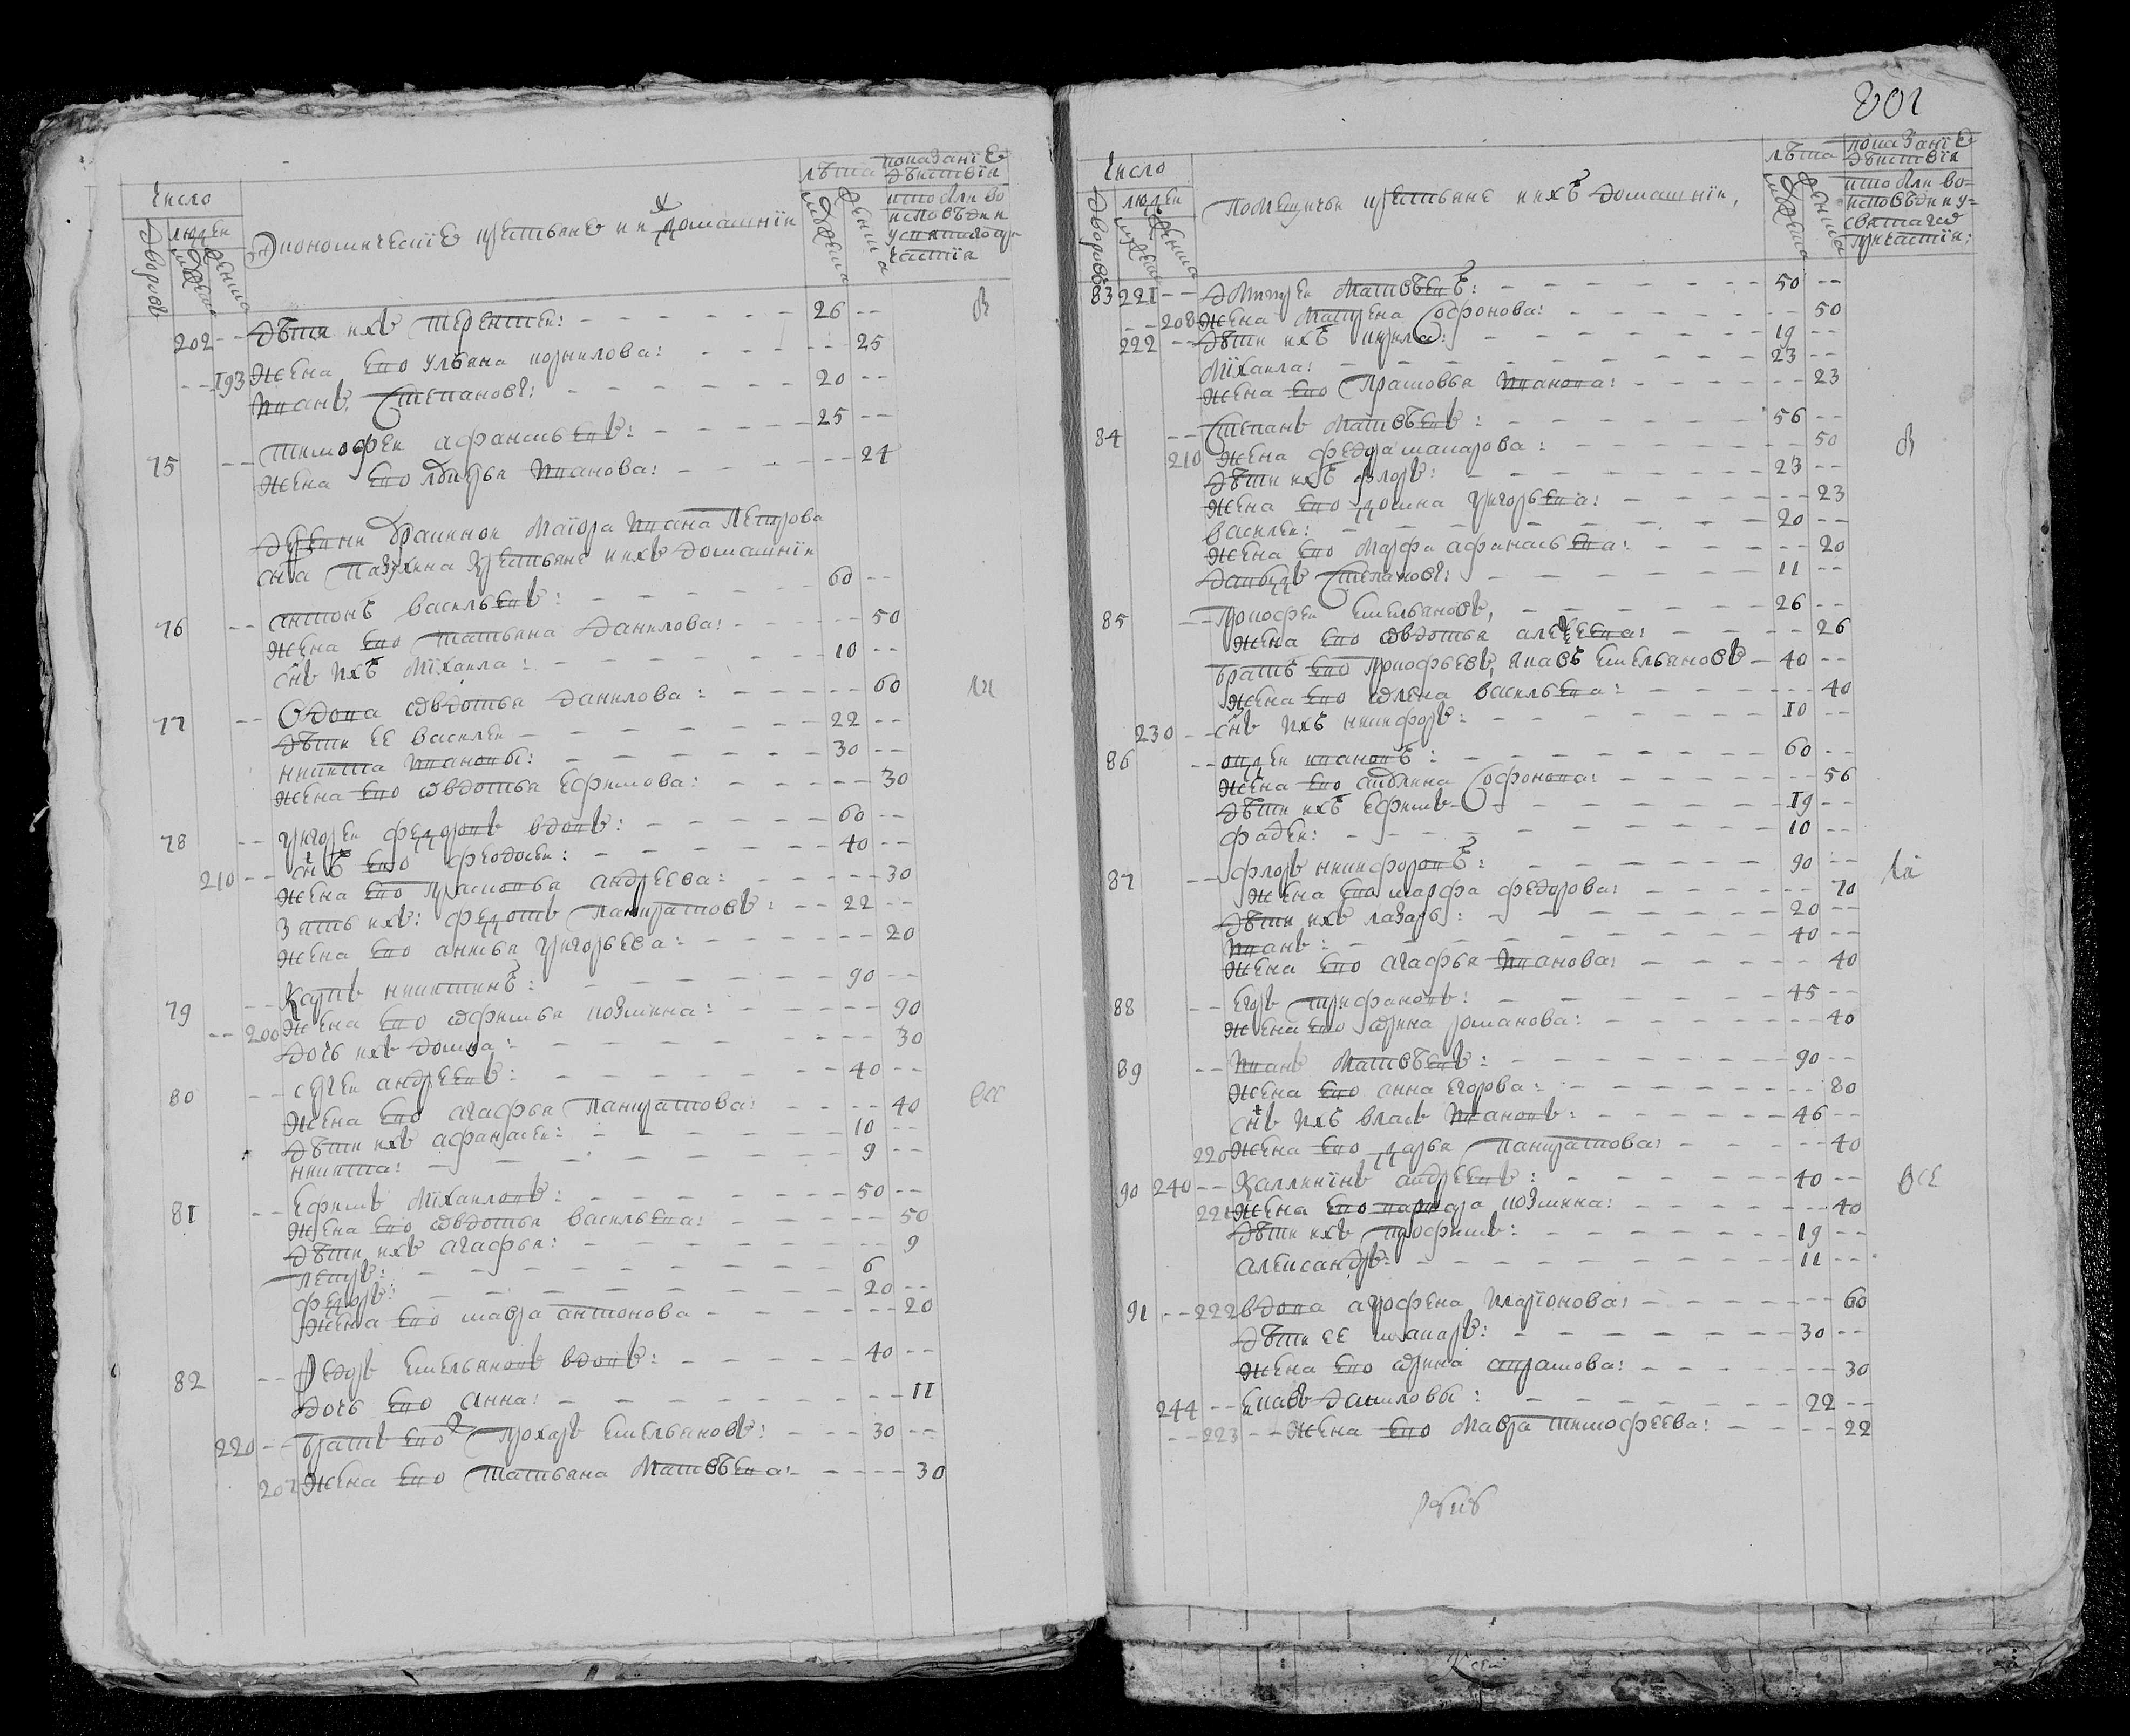 число
дворовъ
людей
мужеска
женска
Экономические крестьяне и ихъ домашнїи
лѣта
мужеска
женска
показанїе
дѣйствїя
кто былъ во
исповѣди и
у святаго при
частїя
202 -- Дѣти ихъ терентей: 26 --
-- 193 жена его ульяна корнилова: -- 25
иванъ Степановъ: 20 --
75 -- тимофей афанасьевъ: 25 --
жена его иванова: -- 24
Деревни маїора ивана Петрова
сна Пазухина крестьяне и ихъ домашнїи
76 -- антонъ васильевъ: 60 --
жена его татьяна данилова: -- 50
снъ ихъ Михаила: 10 --
77 -- вдова авдотья данилова: -- 60
дѣти ее василей 22 --
никита ивановы: 30 --
жена его авдотья ефимова: -- 30
78 -- григорей федоровъ вдовъ: 60 --
210 -- снъ его феодосей: 40 --
жена его прасковья андреева: -- 30
зять ихъ: федотъ панкратовъ: 22 --
жена его анисья григорьева: -- 20
79 -- карпъ никитинъ: 90 --
-- 200 жена его афимья козмина: -- 90
дочь ихъ домна: -- 30
80 -- сергей андреевъ: 40 --
жена его агафья панкратова: -- 40
дѣти ихъ афанасей: 10 --
никита: 9 --
81 -- ефимъ михаиловъ: 50 --
жена его авдотья васильева: -- 50
дѣти ихъ агафья: -- 9
петръ: 6
федоръ: 20 --
жена его мавра антонова -- 20
82 -- федоръ емельяновъ вдовъ: 40 --
дочь его анна: -- 11
220 -- братъ его прохаръ емельяновъ: 30 --
207 жена его татьяна матвѣева: -- 30
801
число
дворовъ
людей
мужеска
женска
Помещичьи крестьяне и ихъ домашнїи,
лѣта
мужеска
женска
показанїе
дѣйствїя
кто былъ во-
исповѣди и у-
святаго
причастїя:
83 221 -- дмитрей матвѣевъ: 50 --
-- 208 жена матрена софронова: -- 50
222 -- дѣти ихъ кирила: 19 --
михаила: 23 --
жена его прасковья иванова: -- 23
84 -- Степанъ матвѣевъ: 56 --
210 жена федора макарова: -- 50
дѣти ихъ флоръ: 23 --
жена его домна григорьева: -- 23
василей: 20 --
жена его марфа афанасьева: -- 20
давыдъ Степановъ: 11 --
85 -- прокофей емельяновъ, 26 --
жена его авдотья алексеева: -- 26
братъ его прокофьевъ, яковъ емельяновъ 40 --
жена его алена васильева: -- 40
230 -- снъ ихъ никифоръ: 10 --
86 -- андрей ивановъ: 60 --
жена его софронова: -- 56
дѣти ихъ ефимъ 19 --
фадей: 10 --
87 -- флоръ никифоровъ: 90 --
жена его марфа федорова: -- 70
дѣти ихъ лазарь: 20 --
иванъ: 40 --
жена его агафья иванова: -- 40
88 -- егоръ трифановъ: 45 --
жена его арина романова: -- 40
89 -- иванъ матвѣевъ: 90 --
жена его анна егорова: -- 80
снъ ихъ власъ ивановъ: 46 --
220 жена его дарья панкратова: -- 40
90 240 -- каллинїнъ андреевъ: 40 --
221 жена его варвара козмина: -- 40
дѣти ихъ трофимъ: 19 --
александръ: 11 --
91 -- 222 вдова агрофена иларїонова: -- 60
дѣти ее макаръ: 30 --
жена его арина абрамова: -- 30
244 -- яковъ даниловы: 22 --
-- 223 -- жена его мавра тимофеева: -- 22